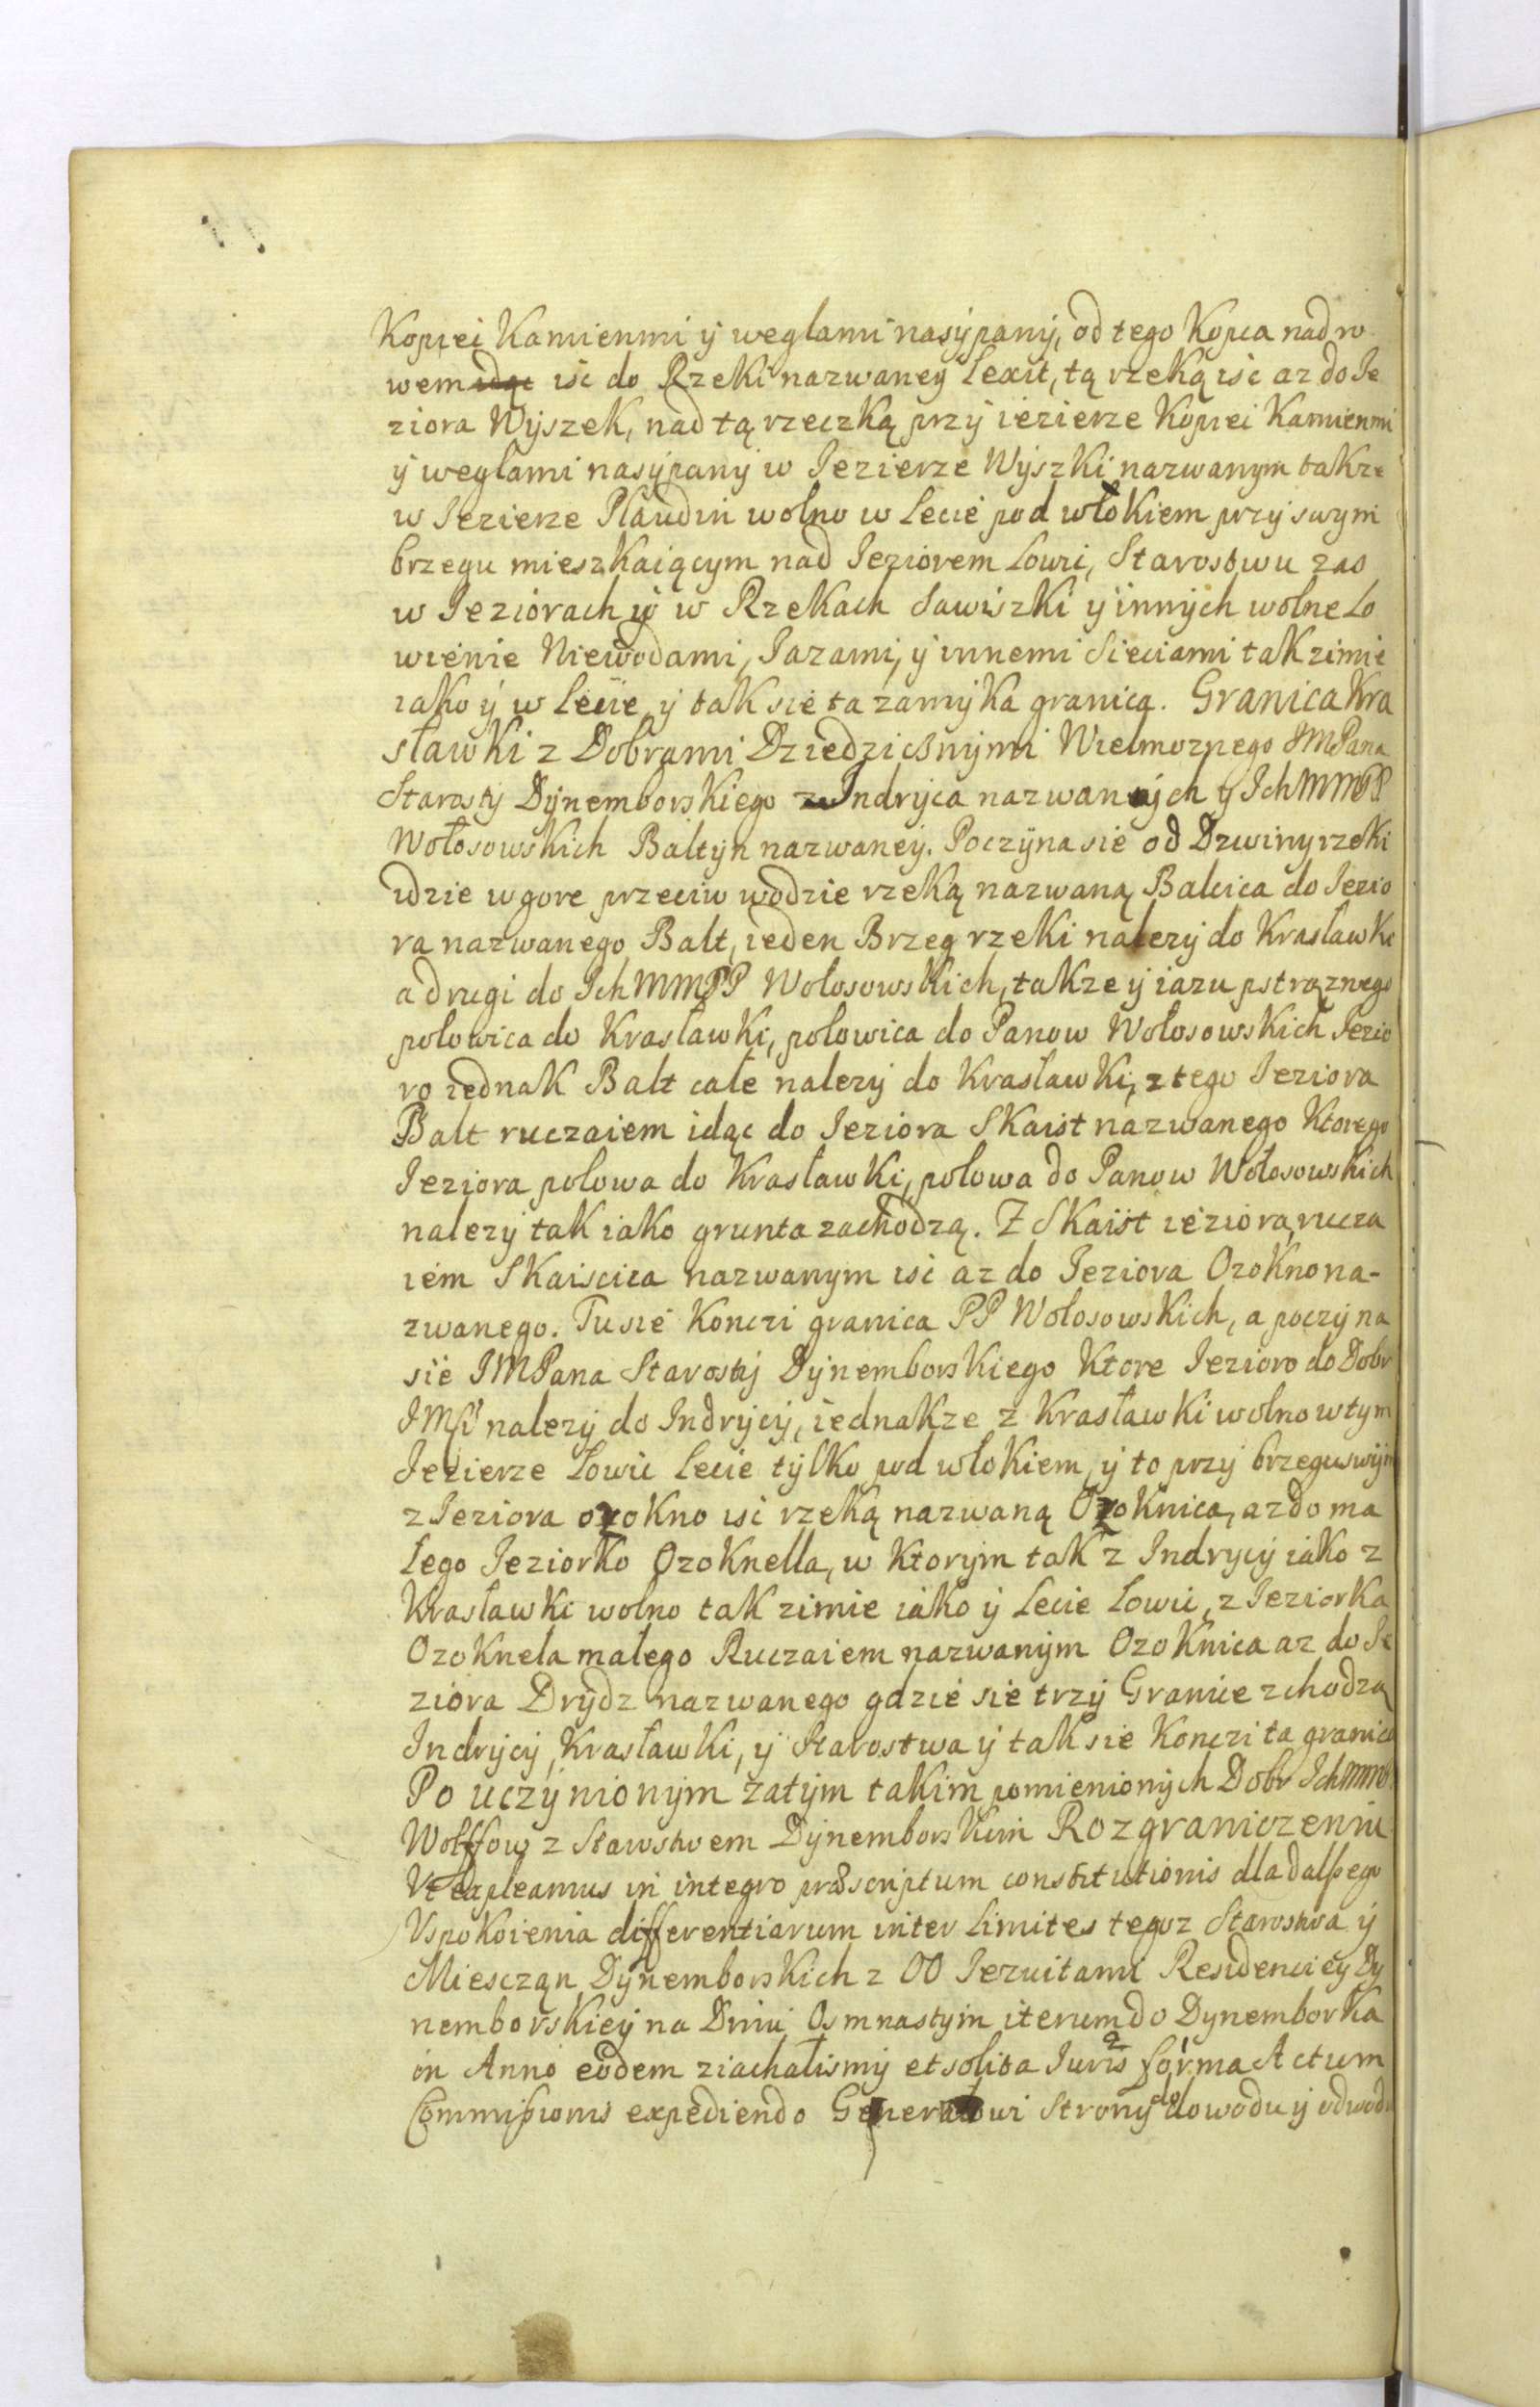 Kopiei Kamienmi ÿ weglami nasÿpanÿ, od tego Kopca nad ro
wem idąc isc do Rzeki nazwaney Lexit, tą rzeką isc az do Ie
ziora Wÿszek, nad tą rzeczką przÿ iezierze Kopiei Kamienmi
ÿ weglami nasÿpanÿ w Iezierze Wÿszki nazwanym takze
w Iezierze Plaudin wolno w Lecie pod włokiem przÿ swym
brzegu mieszkaiącym nad Ieziorem Lowic, Starostwu zas
w Ieziorach ÿ w Rzekach Sawiszki ÿ innÿch wolne Lo
wienie Niewodami, Iazami, ÿ innemi Sieciami tak zimie
iako ÿ w Lecie, ÿ tak sie ta zamÿka granica. Granica Kra
sławki z Dobrami Dziedzicznÿmi Wielmoznego IMPana
Starostÿ Dÿnemborskiego z Indrÿca nazwanÿch ÿ IchMMPP
Wołosowskich Baltÿn nazwaneÿ. Poczÿna sie od Dzwiny rzeki
idzie w gore przeciw wodzie rzeką nazwaną Balcica do Iezio
ra nazwanego Balt, ieden Brzeg rzeki nalezÿ do Krasławki
a drugi do IchMMPP Wołosowskich, takze ÿ iazu pstrąznego
połowica do Krasławki, połowica do Panow Wołosowskich Iezio
ro iednak Balt całe nalezÿ do Krasławki, z tego Ieziora
Balt ruczaiem idąc do Ieziora Skaist nazwanego Ktorego
Ieziora połowa do Krasławki, połowa do Panow Wołosowskich
nalezÿ tak iako grunta zachodzą. Z Skaist ieziora, rucza
iem Skaiscica nazwanym isc az do Ieziora Ozokno na-
zwanego. Tu sie Konczi granica PP Wołosowskich, a poczÿna
sie IMPana Starostÿ Dÿnemborskiego Ktore Iezioro do Dobr
IMści nalezÿ do Indrÿcÿ, iednakze z Krasławki wolno w tym
Iezierze Lowic Lecie tÿlko pod włokiem, ÿ to przy brzegu swÿm
z Ieziora ozokno isc rzeką nazwaną Ozoknica, az do ma
łego Ieziorko Ozoknella, w Ktorÿm tak z Indrycÿ iako z
Krasławki wolno tak zimie iako ÿ Lecie Lowic, z Ieziorka
Ozoknela małego Ruczaiem nazwanÿm Ozoknica az do Ie
ziora Drÿdz nazwanego gdzie sie trzÿ Granice zchodzą
Indrÿcÿ, Krasławki, ÿ Starostwa ÿ tak sie Konczi ta granica
Po uczÿnionÿm zatÿm takim pomienionÿch Dobr IchMMP
Wolffow z Starostwem Dÿnemborskim Rozgraniczeniu
Vt expleamus in integro præscriptum constitutionis dla dalszego
Uspokoienia differentiarum inter Limites tegoz Starostwa ÿ
Miesczan Dÿnemborskich z OO Iezuitami Residencieÿ Dÿ
nemborskieÿ na Dniu Osmnastÿm iterum do Dynemborka
in Anno eodem ziachalismÿ et solita Iuris forma Actum
Commissionis expediendo Generałowi Stronÿ do dowodu ÿ odwodu